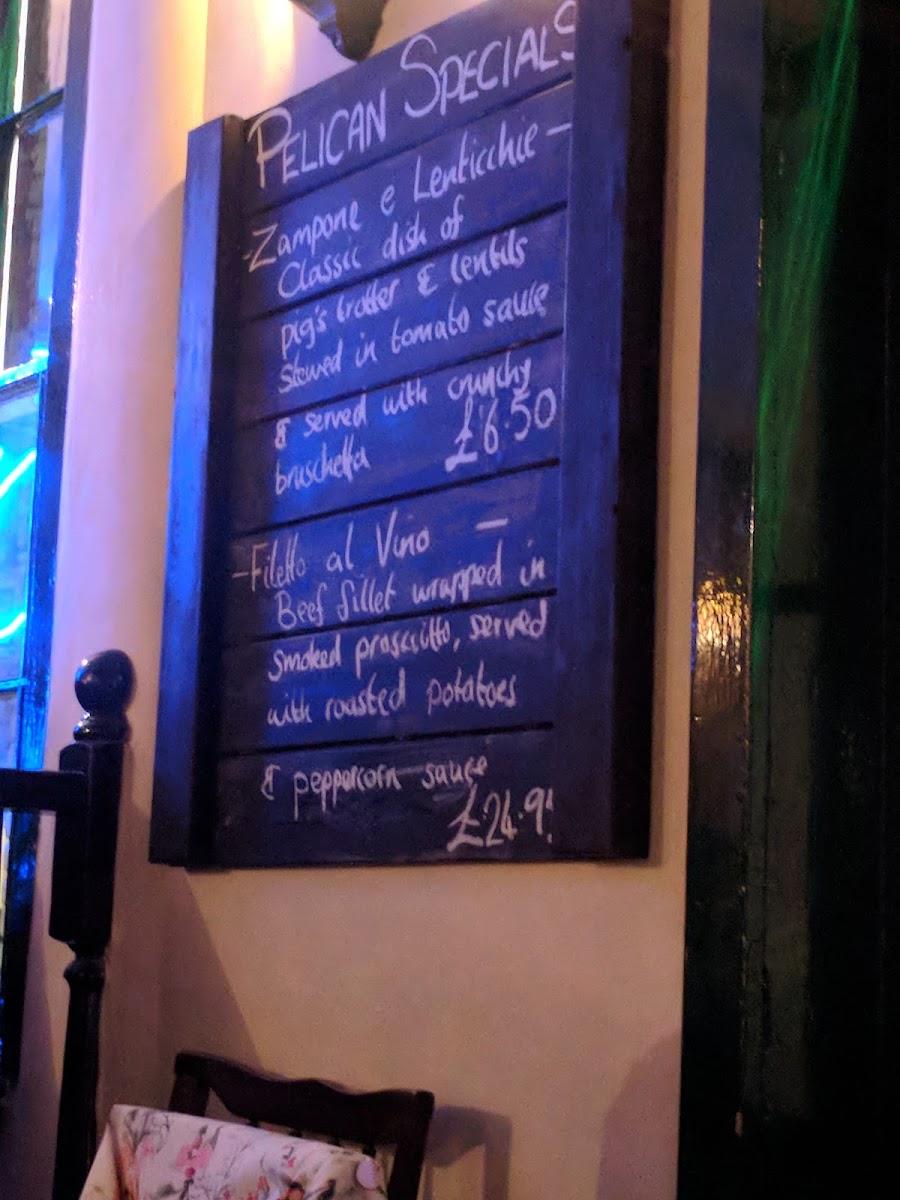 PELICAN SPECIALS
- Zampone e Lenticchie -
Classic dish of
pig's trotter & lentils
Stewed in tomato sauce
& served with crunchy
bruschetta £6.50
- Filetto al Vino -
Beef fillet wrapped in
smoked prosciutto, served
with roasted potatoes
& peppercorn sauce
£24.9